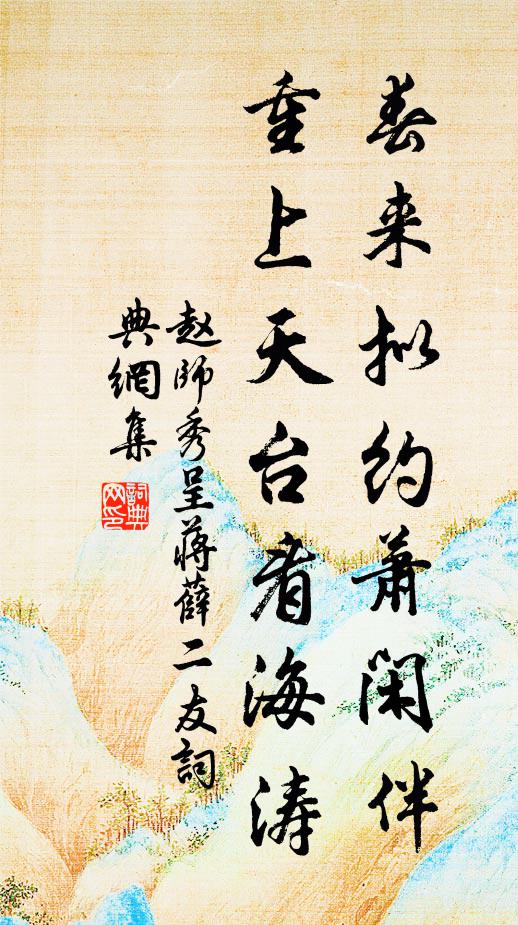 春来拟约萧闲伴
重上天台看海涛
赵师秀呈蒋薛二友词
典網集
詞典網印